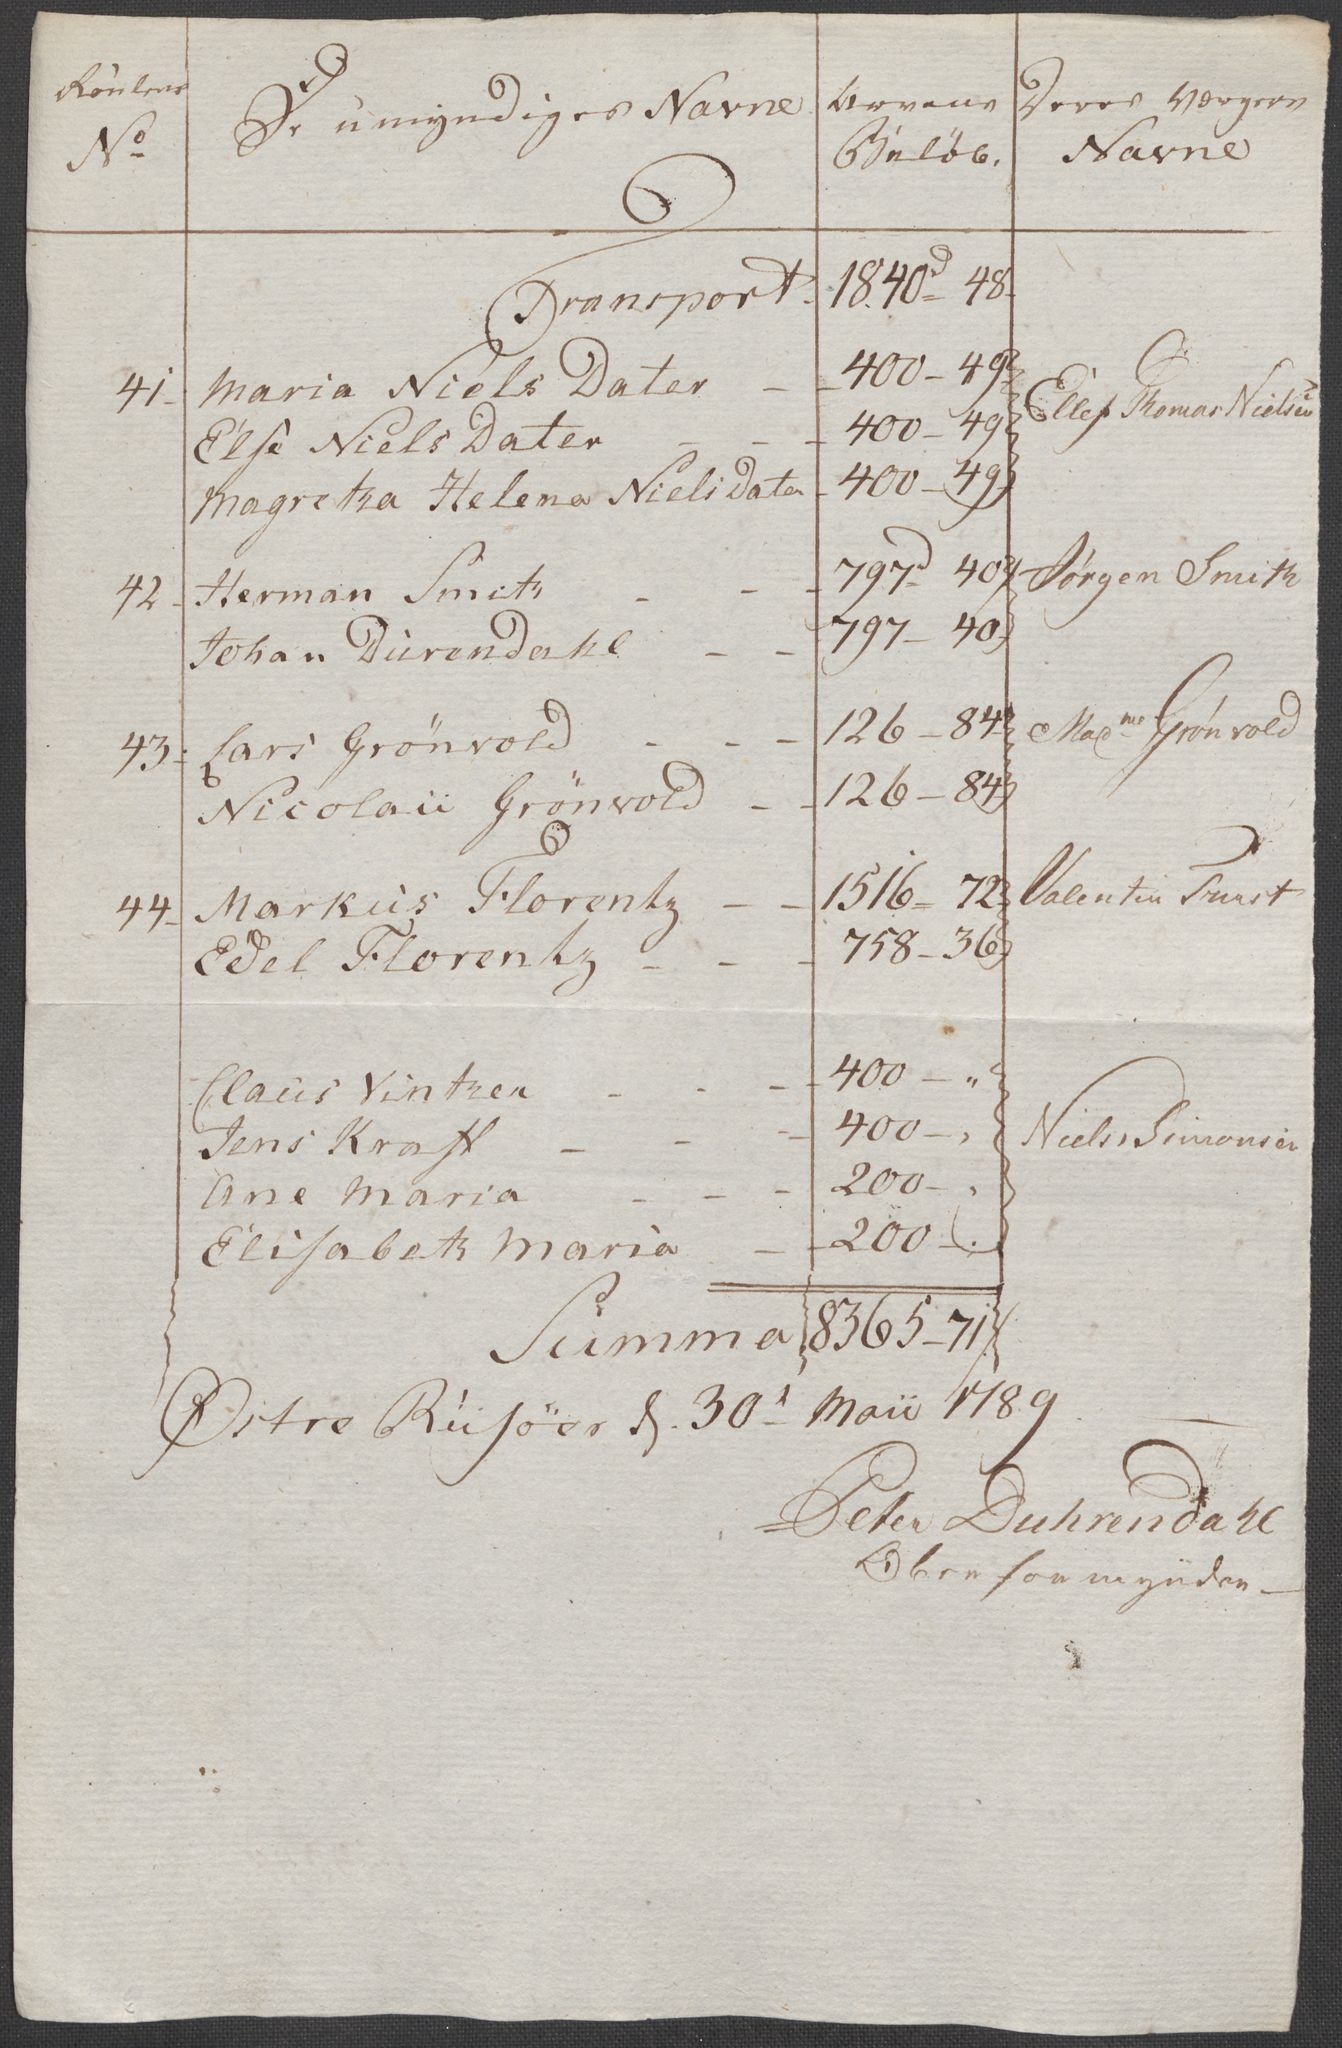 No De umyndiges Navne Arvens Deres Værgers
Beløb. Navne
Transport. 1840d 48
41 Maria Niels Dater 400 - 49 Ellef Thomas Nielsen
Else Niels Dater 400 - 49
Magretha Helena Niels Dater 400 - 49
42 Herman Smith 797d 40 Jørgen Smith
Johan Dürendahl 797 - 40
43 Lars Grönvold 126 - 84 Madme Grönvold
Nicolaii Grönvold 126 - 84
44 Markus Florentz 1516 - 72 Valentin Furst
Edel Florentz 758 - 36
Claüs Vinther 400 - "
Jens Kraft 400 - " Niels Simonsen
Ane Maria 200 - "
Elisabeth Maria 200 - "
Summa 8365 - 71
Østre Riisöer d. 30t Maii 1789
Peter Duhrendahl
Oberformynder